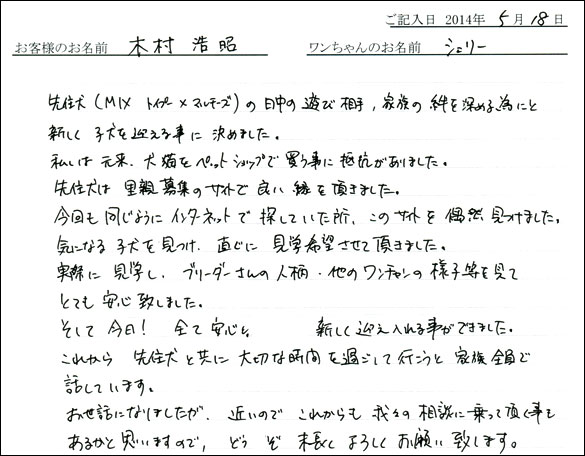 ご記入日 2014年 5月 18日
お客様のお名前 木村 浩昭 ワンちゃんのお名前 シェリー
先住犬(MIX トイプー×マルチーズ)の日中の遊び相手,家族の絆を深める為にと
新しく子犬を迎える事に決めました。
私しは元来、犬猫をペットショップで買う事に抵抗がありました。
先住犬は里親募集のサイトで良い縁を頂きました。
今回も同じようにインターネットで探していた所、このサイトを偶然見つけました。
気になる子犬を見つけ、直ぐに見学希望させて頂きました。
実際に見学し、ブリーダーさんの人柄・他のワンチャンの様子等を見て
とても安心致しました。
そして今日! 全て安心し、 新しく迎え入れる事ができました。
これから先住犬と共に大切な時間を過ごして行こうと家族全員で
話しています。
お世話になりましたが、近いのでこれからも我々の相談に乗って頂く事も
あるかと思いますので、どうぞ末長くよろしくお願い致します。